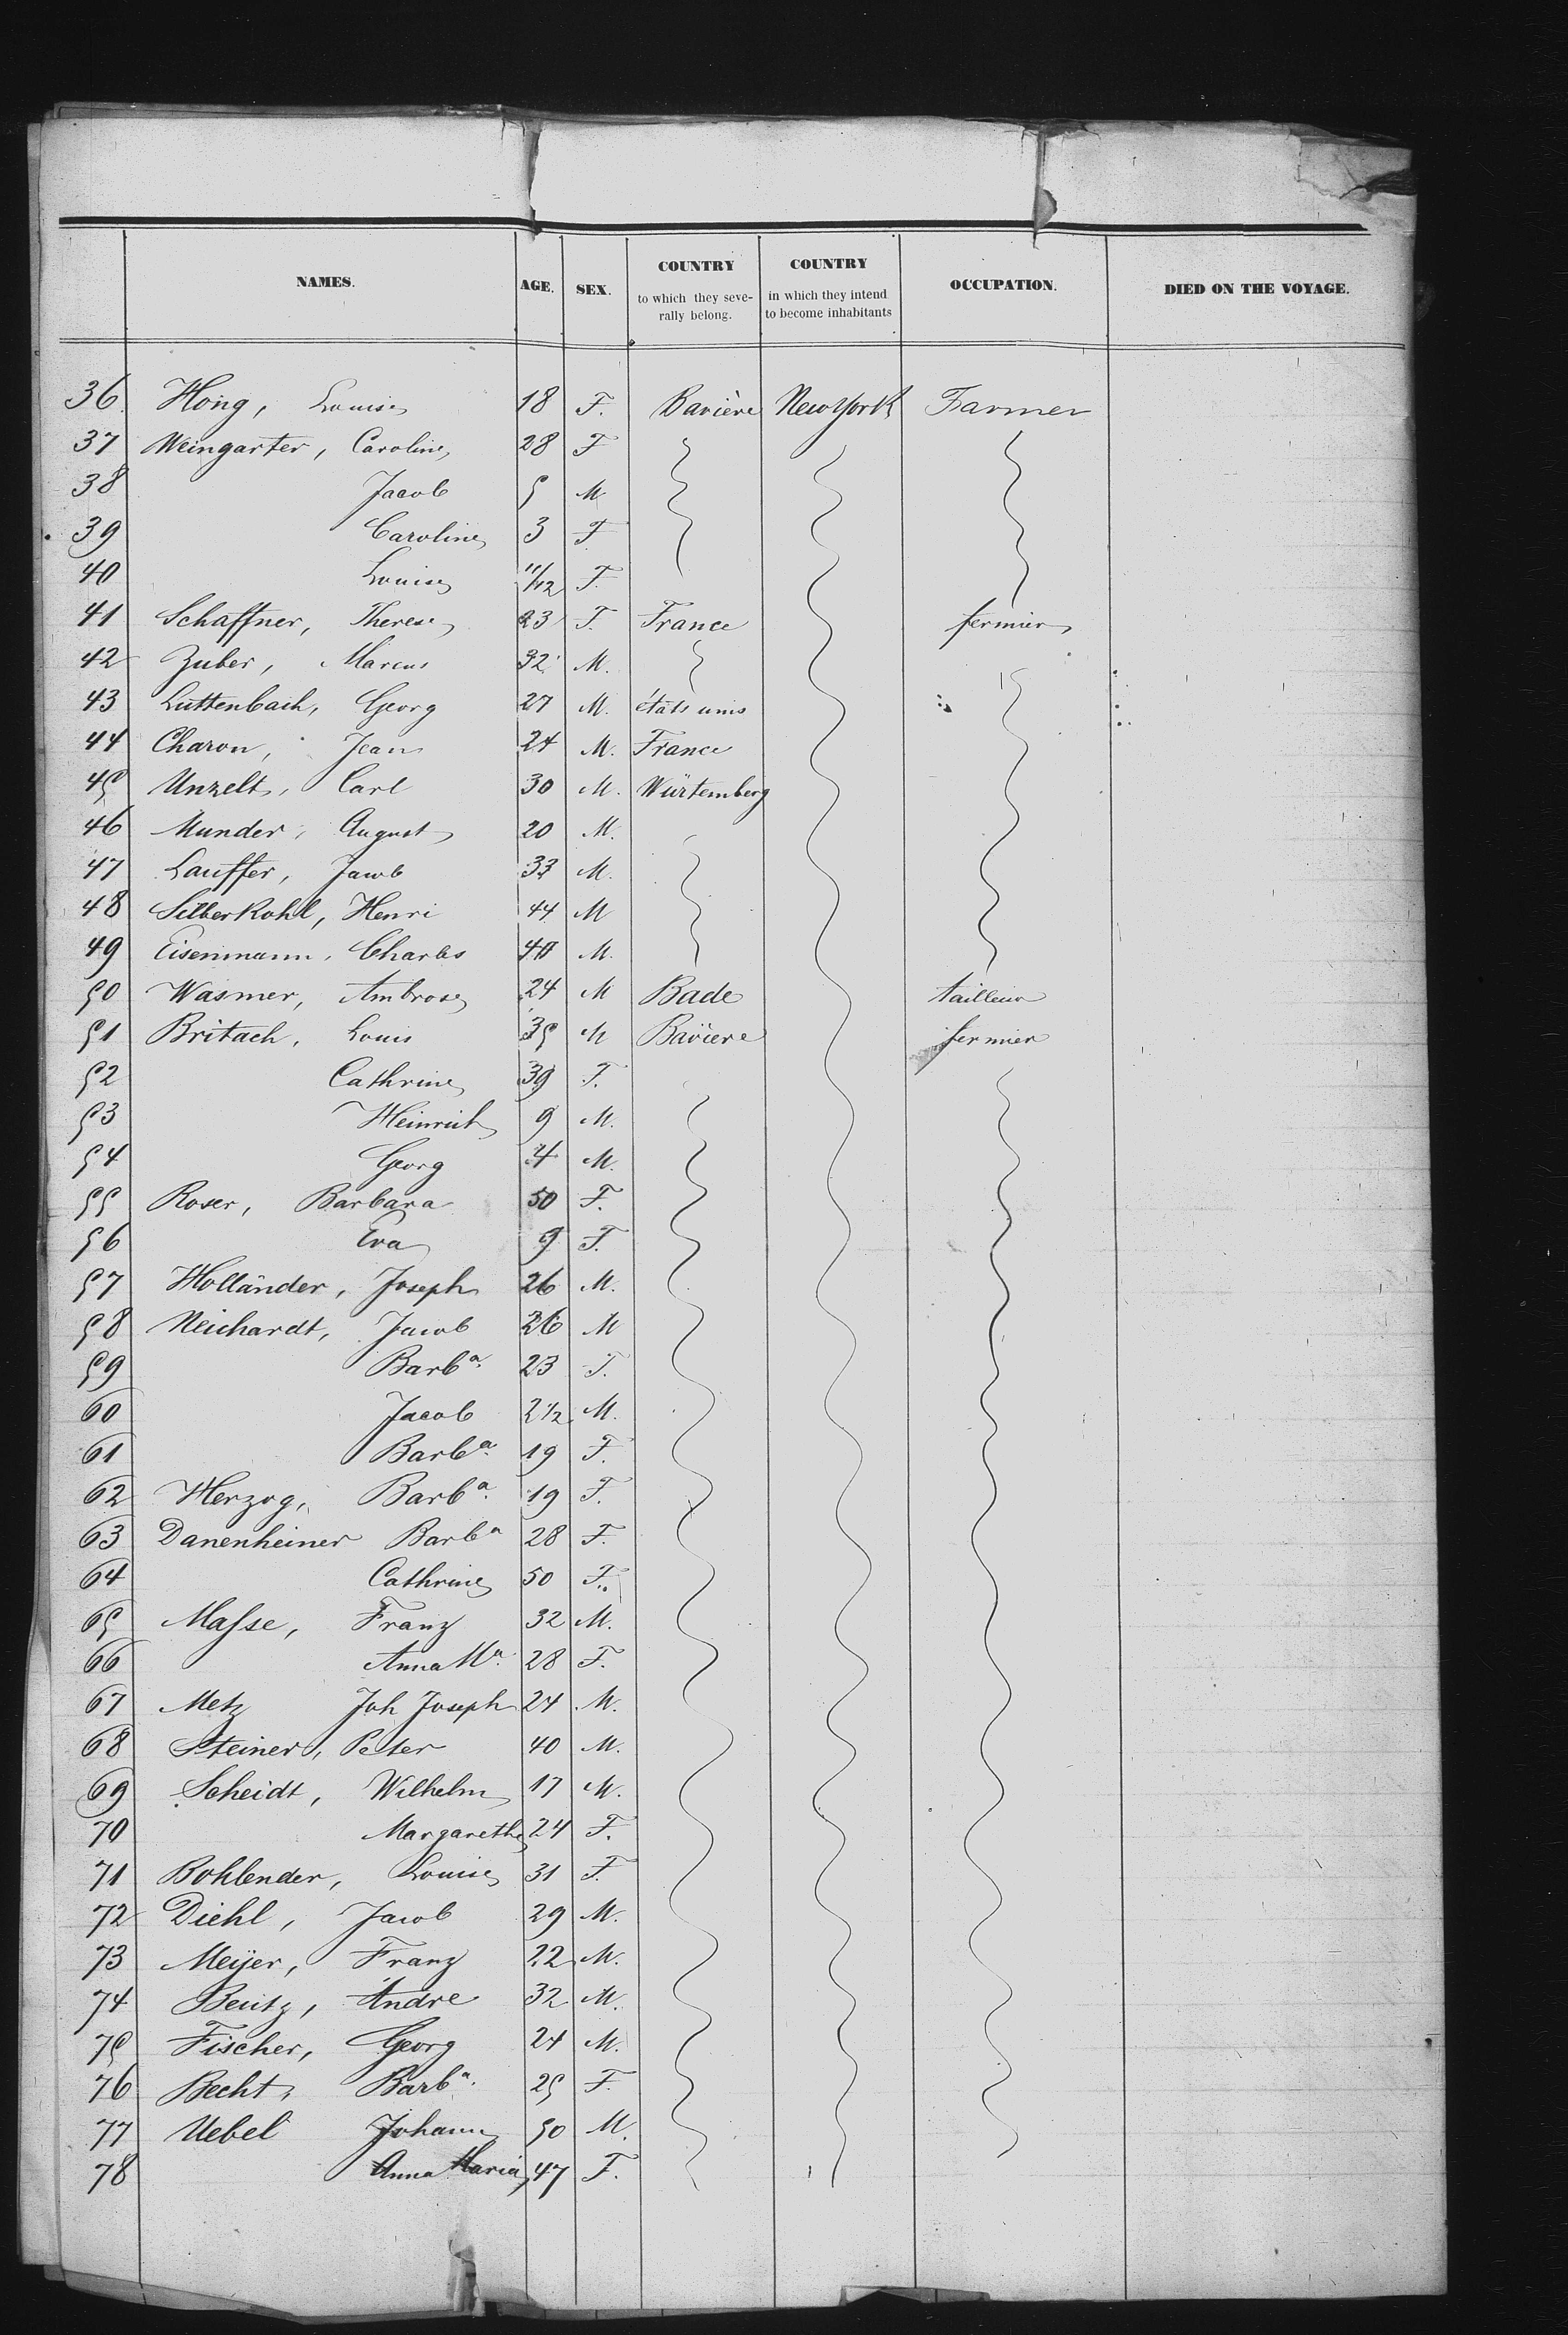 NAMES. AGE. SEX. COUNTRY to which they seve-rally belong. COUNTRY in which they intend to become inhabitants OCCUPATION. DIED ON THE VOYAGE.
36 Hoing, Louise 18 F. Bavière New York Farmer
37 Weingarter, Caroline 28 F
38 Jacob 5 M
39 Caroline 3 F
40 Louise 11/12 F.
41 Schaffner, Therese 23 F. France fermier
42 Zuber, Marcus 32 M.
43 Luttenbach, Georg 27 M. états unis
44 Charon, Jean 24 M. France
45 Unzelt, Carl 30 M. Würtemberg
46 Munder, August 20 M.
47 Lauffer, Jacob 33 M.
48 Silberkohl, Henri 44 M
49 Eisenmann, Charles 40 M.
50 Wasmer, Ambrose 24 M Bade tailleur
51 Britach, Louis 35 M Bavière fermier
52 Cathrine 39 F.
53 Heinrich 9 M.
54 Georg 4 M.
55 Roser, Barbara 50 F.
56 Eva 9 F.
57 Holländer, Joseph 26 M.
58 Neichardt, Jacob 26 M
59 Barba. 23 F.
60 Jacob 2 1/2 M.
61 Barba. 19 F.
62 Herzog, Barba. 19 F.
63 Danenheiner Barba 28 F.
64 Cathrine 50 F.
65 Masse, Franz 32 M.
66 Anna Ma. 28 F.
67 Metz Joh Joseph 24 M.
68 Steiner, Peter 40 M.
69 Scheidt, Wilhelm 17 M.
70 Margarethe 24 F.
71 Bohlender, Louise 31 F.
72 Diehl, Jacob 29 M.
73 Meijer, Franz 22 M.
74 Beutz, Andre 32 M.
75 Fischer, Georg 24 M.
76 Becht, Barba. 25 F.
77 Uebel Johann 50 M.
78 Anna Maria 47 F.